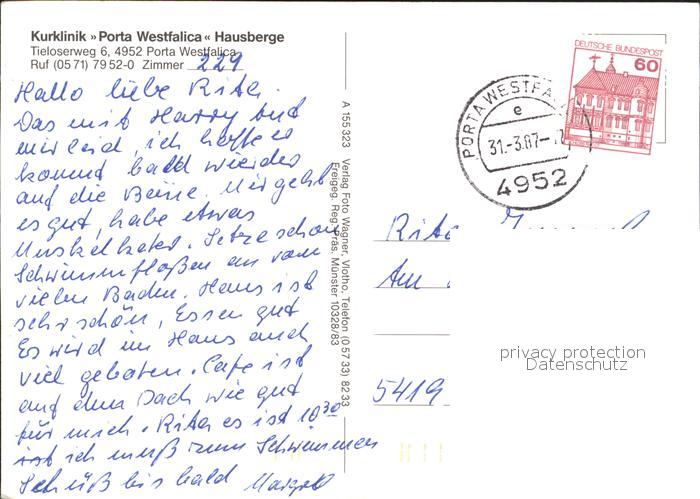 Kurklinik »Porta Westfalica« Hausberge
Tieloserweg 6, 4952 Porta Westfalica
Ruf (05 71) 79 52-0 Zimmer 229
Hallo liebe Rita.
Das mit Harry tut
mir leid, ich hoffe er
kommt bald wieder
auf die Beine. Mir geht
es gut, habe etwas
Muskelkater. Setze schon
Schwimmfloßen an vom
vielen Baden. Haus ist
sehr schön, Essen gut
Es wird im Haus auch
viel geboten. Cafe ist
auf dem Dach wie gut
für mich. Rita es ist 10 30
ich muß zum Schwimmen
Schüß bis bald Margot
A 155 323 Verlag Foto Wagner, Vlotho, Telefon (0 57 33) 82 33
Freigeg. Reg. Präs. Münster 10328/83
DEUTSCHE BUNDESPOST
60
PORTA WESTFA
e
31.-3.87-
4952
Rita
Am
5419
privacy protection
Datenschutz